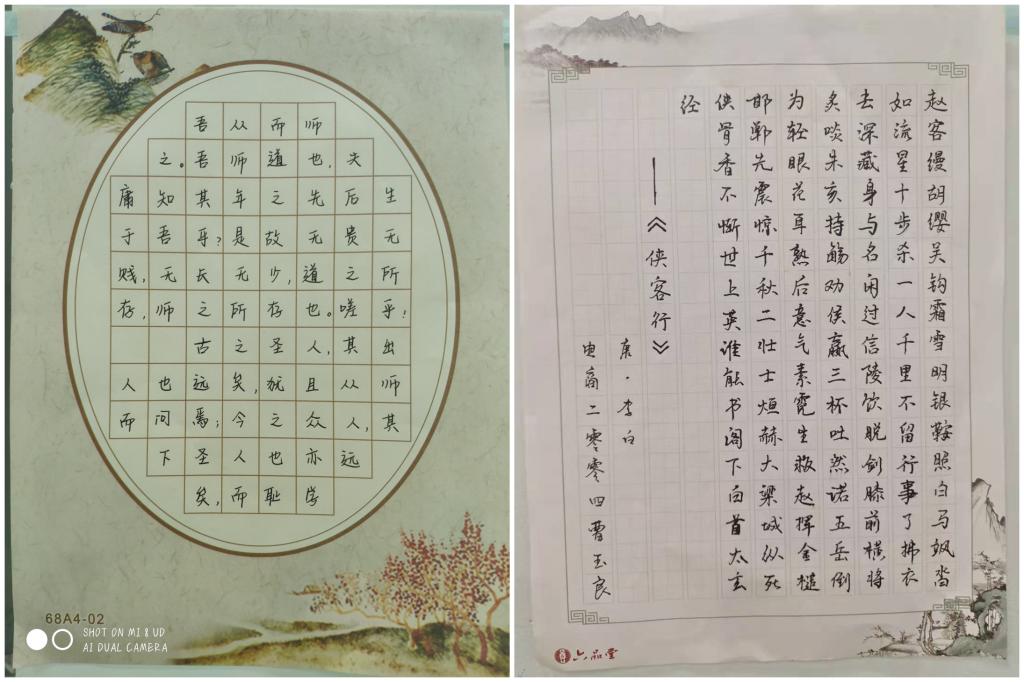 吾从而师
之。吾师道也，夫
庸知其年之先后生
于吾乎？是故无贵无
贱，无长无少，道之所
存，师之所存也。嗟乎！
古之圣人，其出
人也远矣，犹且从师
而问焉；今之众人，其
下圣人也亦远
矣，而耻学
68A4-02
SHOT ON MI 8 UD
AI DUAL CAMERA
赵客缦胡缨吴钩霜雪明银鞍照白马飒沓
如流星十步杀一人千里不留行事了拂衣
去深藏身与名闲过信陵饮脱剑膝前横将
炙啖朱亥持觞劝侯嬴三杯吐然诺五岳倒
为轻眼花耳熟后意气素霓生救赵挥金槌
邯郸先震惊千秋二壮士烜赫大梁城纵死
侠骨香不惭世上英谁能书阁下白首太玄
经
——《侠客行》
唐·李白
电商二零零四曹玉良
六品堂